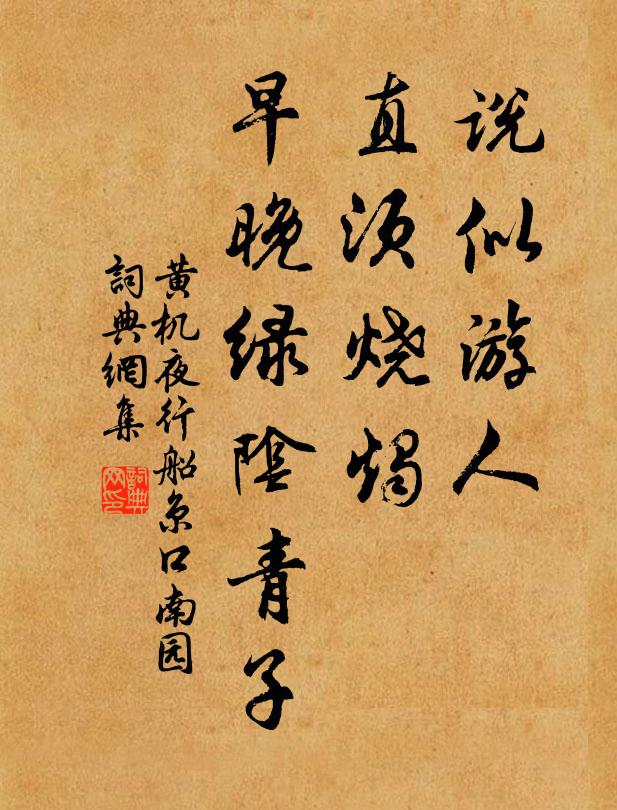 说似游人
直须烧烛
早晚绿阴青子
黄机夜行船京口南园
詞典網集
詞典网印